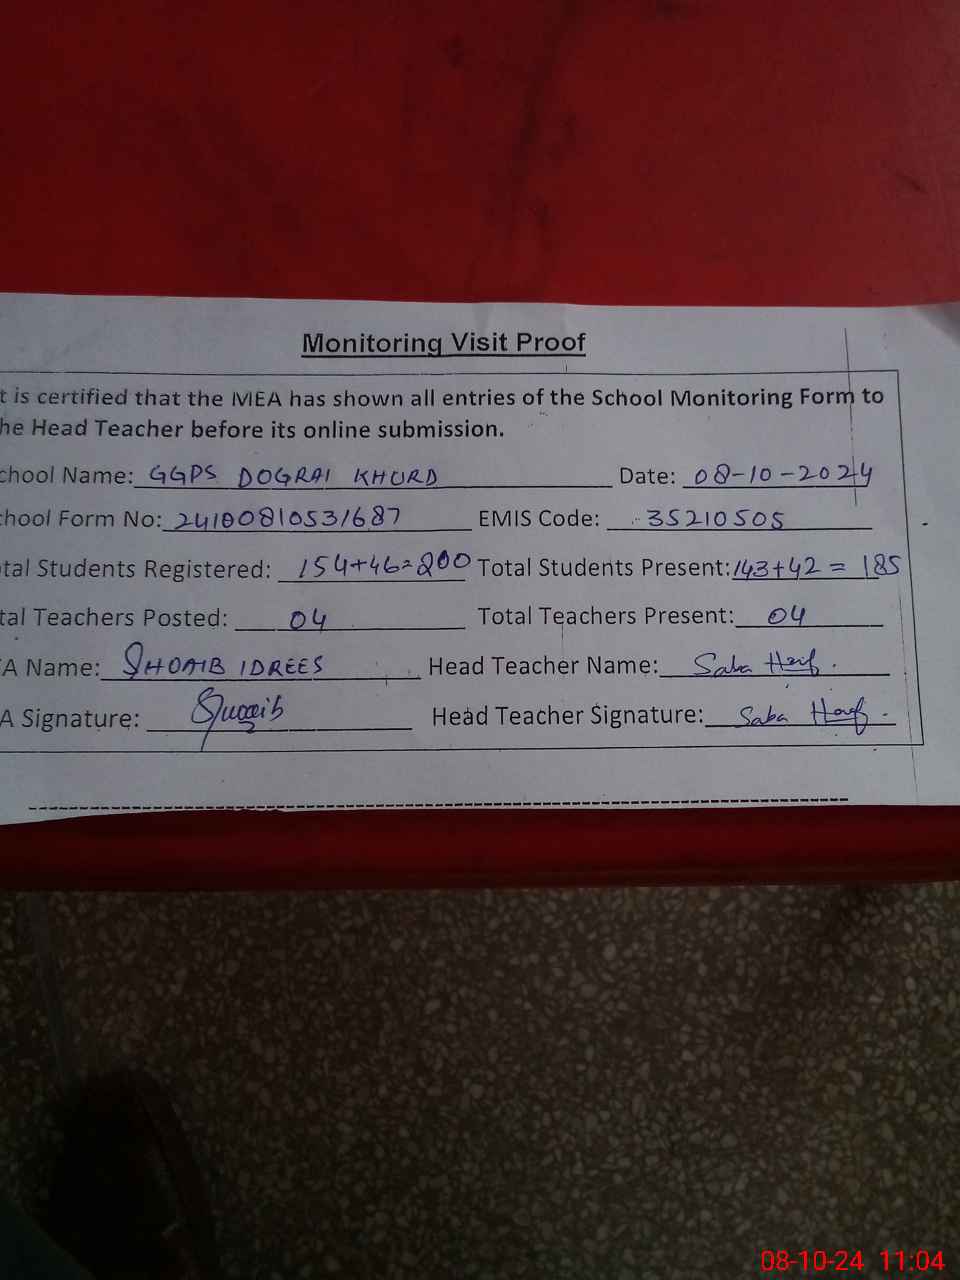 Monitoring Visit Proof
t is certified that the MEA has shown all entries of the School Monitoring Form to
he Head Teacher before its online submission.
chool Name: GGPS DOGRAI KHURD Date: 08-10-2024
hool Form No: 24100810531687 EMIS Code: 35210505
tal Students Registered: 154+46=200 Total Students Present: 143+42=185
tal Teachers Posted: 04 Total Teachers Present: 04
A Name: SHOAIB IDREES Head Teacher Name: Saba
A Signature: Shoaib Head Teacher Signature: Saba
08-10-24 11:04